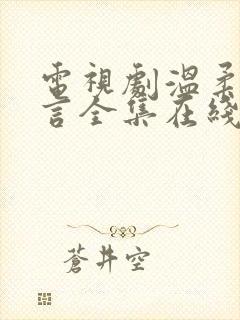 電視劇溫柔
言全集在綫
蒼井空